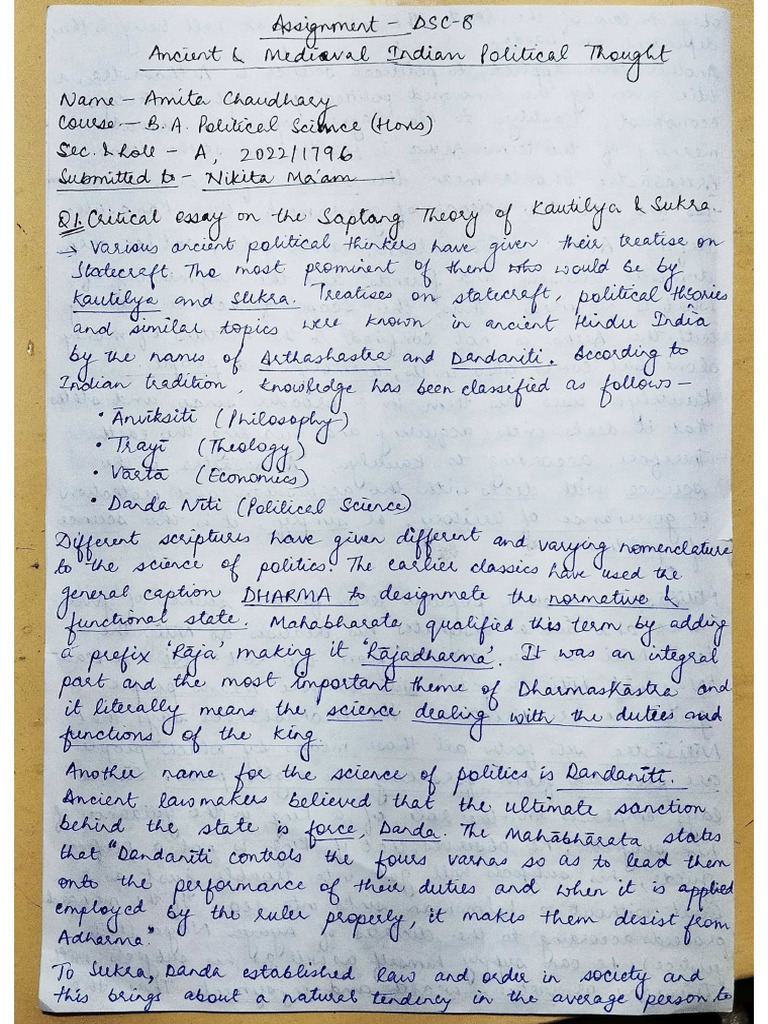 Assignment – DSC-8
Ancient & Medieval Indian Political Thought
Name – Amita Chaudhary
Course – B.A. Political Science (Hons)
Sec. & Roll – A, 2022/1796
Submitted to – Nikita Ma'am
Q1. Critical essay on the Saptang Theory of Kautilya & Sukra.
→ Various ancient political thinkers have given their treatise on
Statecraft. The most prominent of them who would be by
Kautilya and Sukra. Treatises on statecraft, political theories
and similar topics were known in ancient Hindu India
by the names of Arthashastra and Dandaniti. According to
Indian tradition, knowledge has been classified as follows –
• Ānvīksitī (Philosophy)
• Trayī (Theology)
• Vārtā (Economics)
• Danda Nīti (Political Science)
Different scriptures have given different and varying nomenclature
to the science of politics. The earlier classics have used the
general caption DHARMA to designmate the normative &
functional state. Mahabharata qualified this term by adding
a prefix 'Rāja' making it 'Rājadharma'. It was an integral
part and the most important theme of Dharmashāstra and
it literally means the science dealing with the duties and
functions of the king.
Another name for the science of politics is Dandanīti.
Ancient lawmakers believed that the ultimate sanction
behind the state is force, Danda. The Mahābhārata states
that "Dandanīti controls the fours varnas so as to lead them
onto the performance of their duties and when it is applied
employed by the ruler properly, it makes them desist from
Adharma."
To Sukra, Danda established law and order in society and
this brings about a natural tendency in the average person to